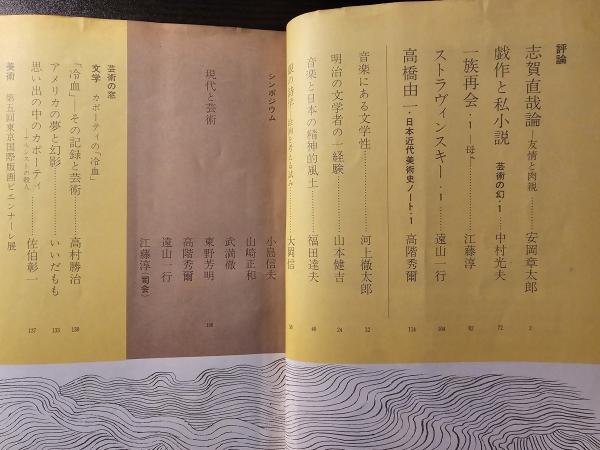 評論
志賀直哉論―友情と肉親………安岡章太郎 2
戯作と私小説 芸術の幻・1………中村光夫 72
一族再会・1―母………江藤淳 92
ストラヴィンスキー・1………遠山一行 104
高橋由一・日本近代美術史ノート・1………高階秀爾 114
音楽にある文学性………河上徹太郎 12
明治の文学者の一経験………山本健吉 24
音楽と日本の精神的風土………福田達夫 40
眼の詩学………大岡信 50
シンポジウム
現代と芸術
小島信夫
山崎正和
武満徹
東野芳明
高階秀爾
遠山一行
江藤淳(司会)
芸術の窓
文学 カポーティの「冷血」
「冷血」―その記録と芸術………高村勝治 130
アメリカの夢と幻影………いいだもも 133
思い出の中のカポーティ………佐伯彰一 137
美術 第五回東京国際版画ビエンナーレ展